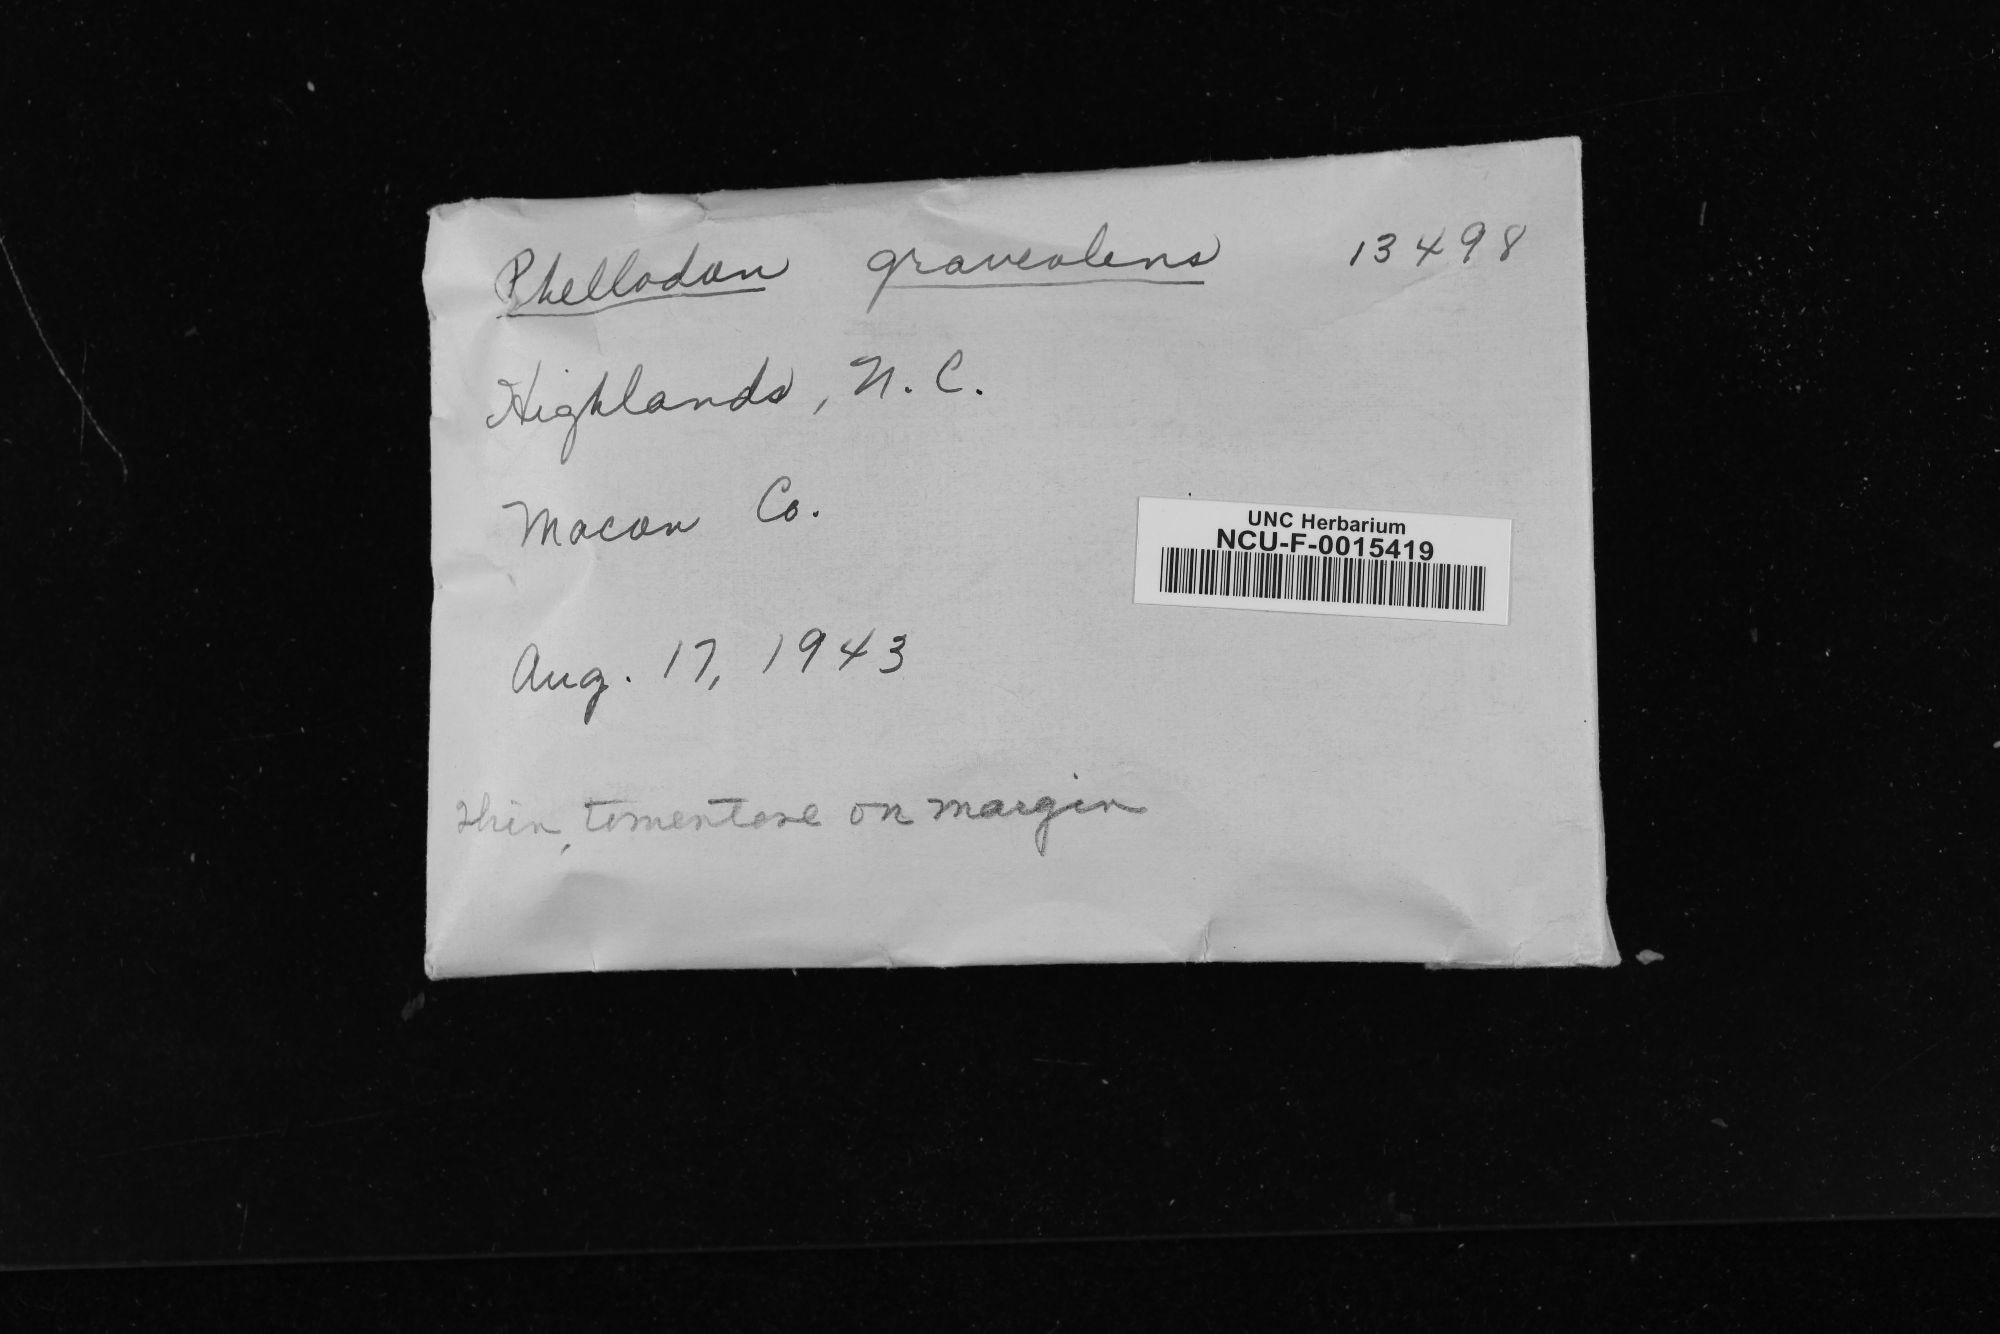 Phellodon graveolens 13498
Highlands, N.C.
Macon Co.
UNC Herbarium
NCU-F-0015419
Aug. 17, 1943
thin, tomentose on margin